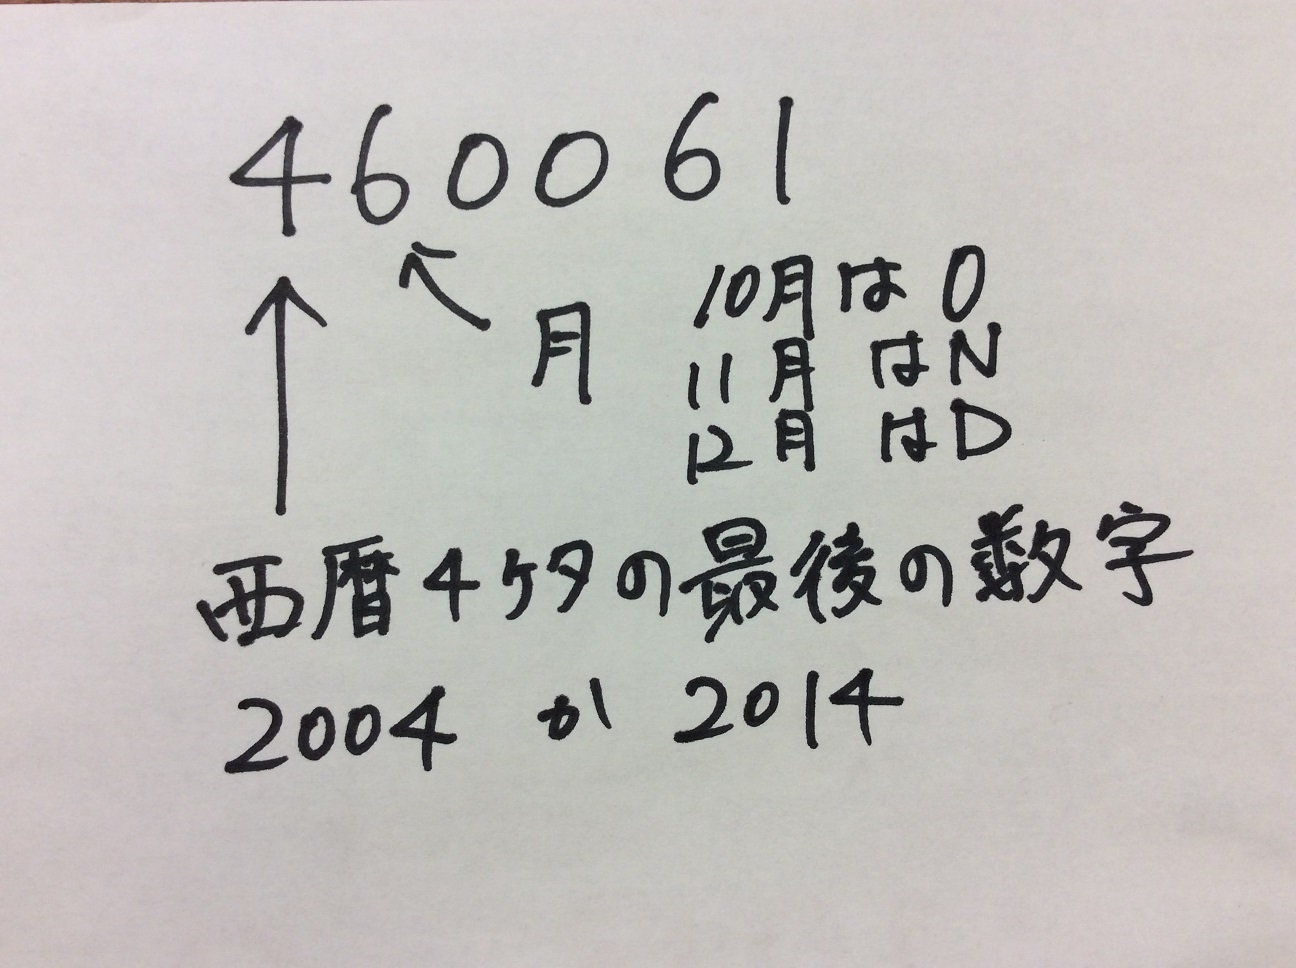 460061
月
10月はO
11月はN
12月はD
西暦4ケタの最後の数字
2004か2014